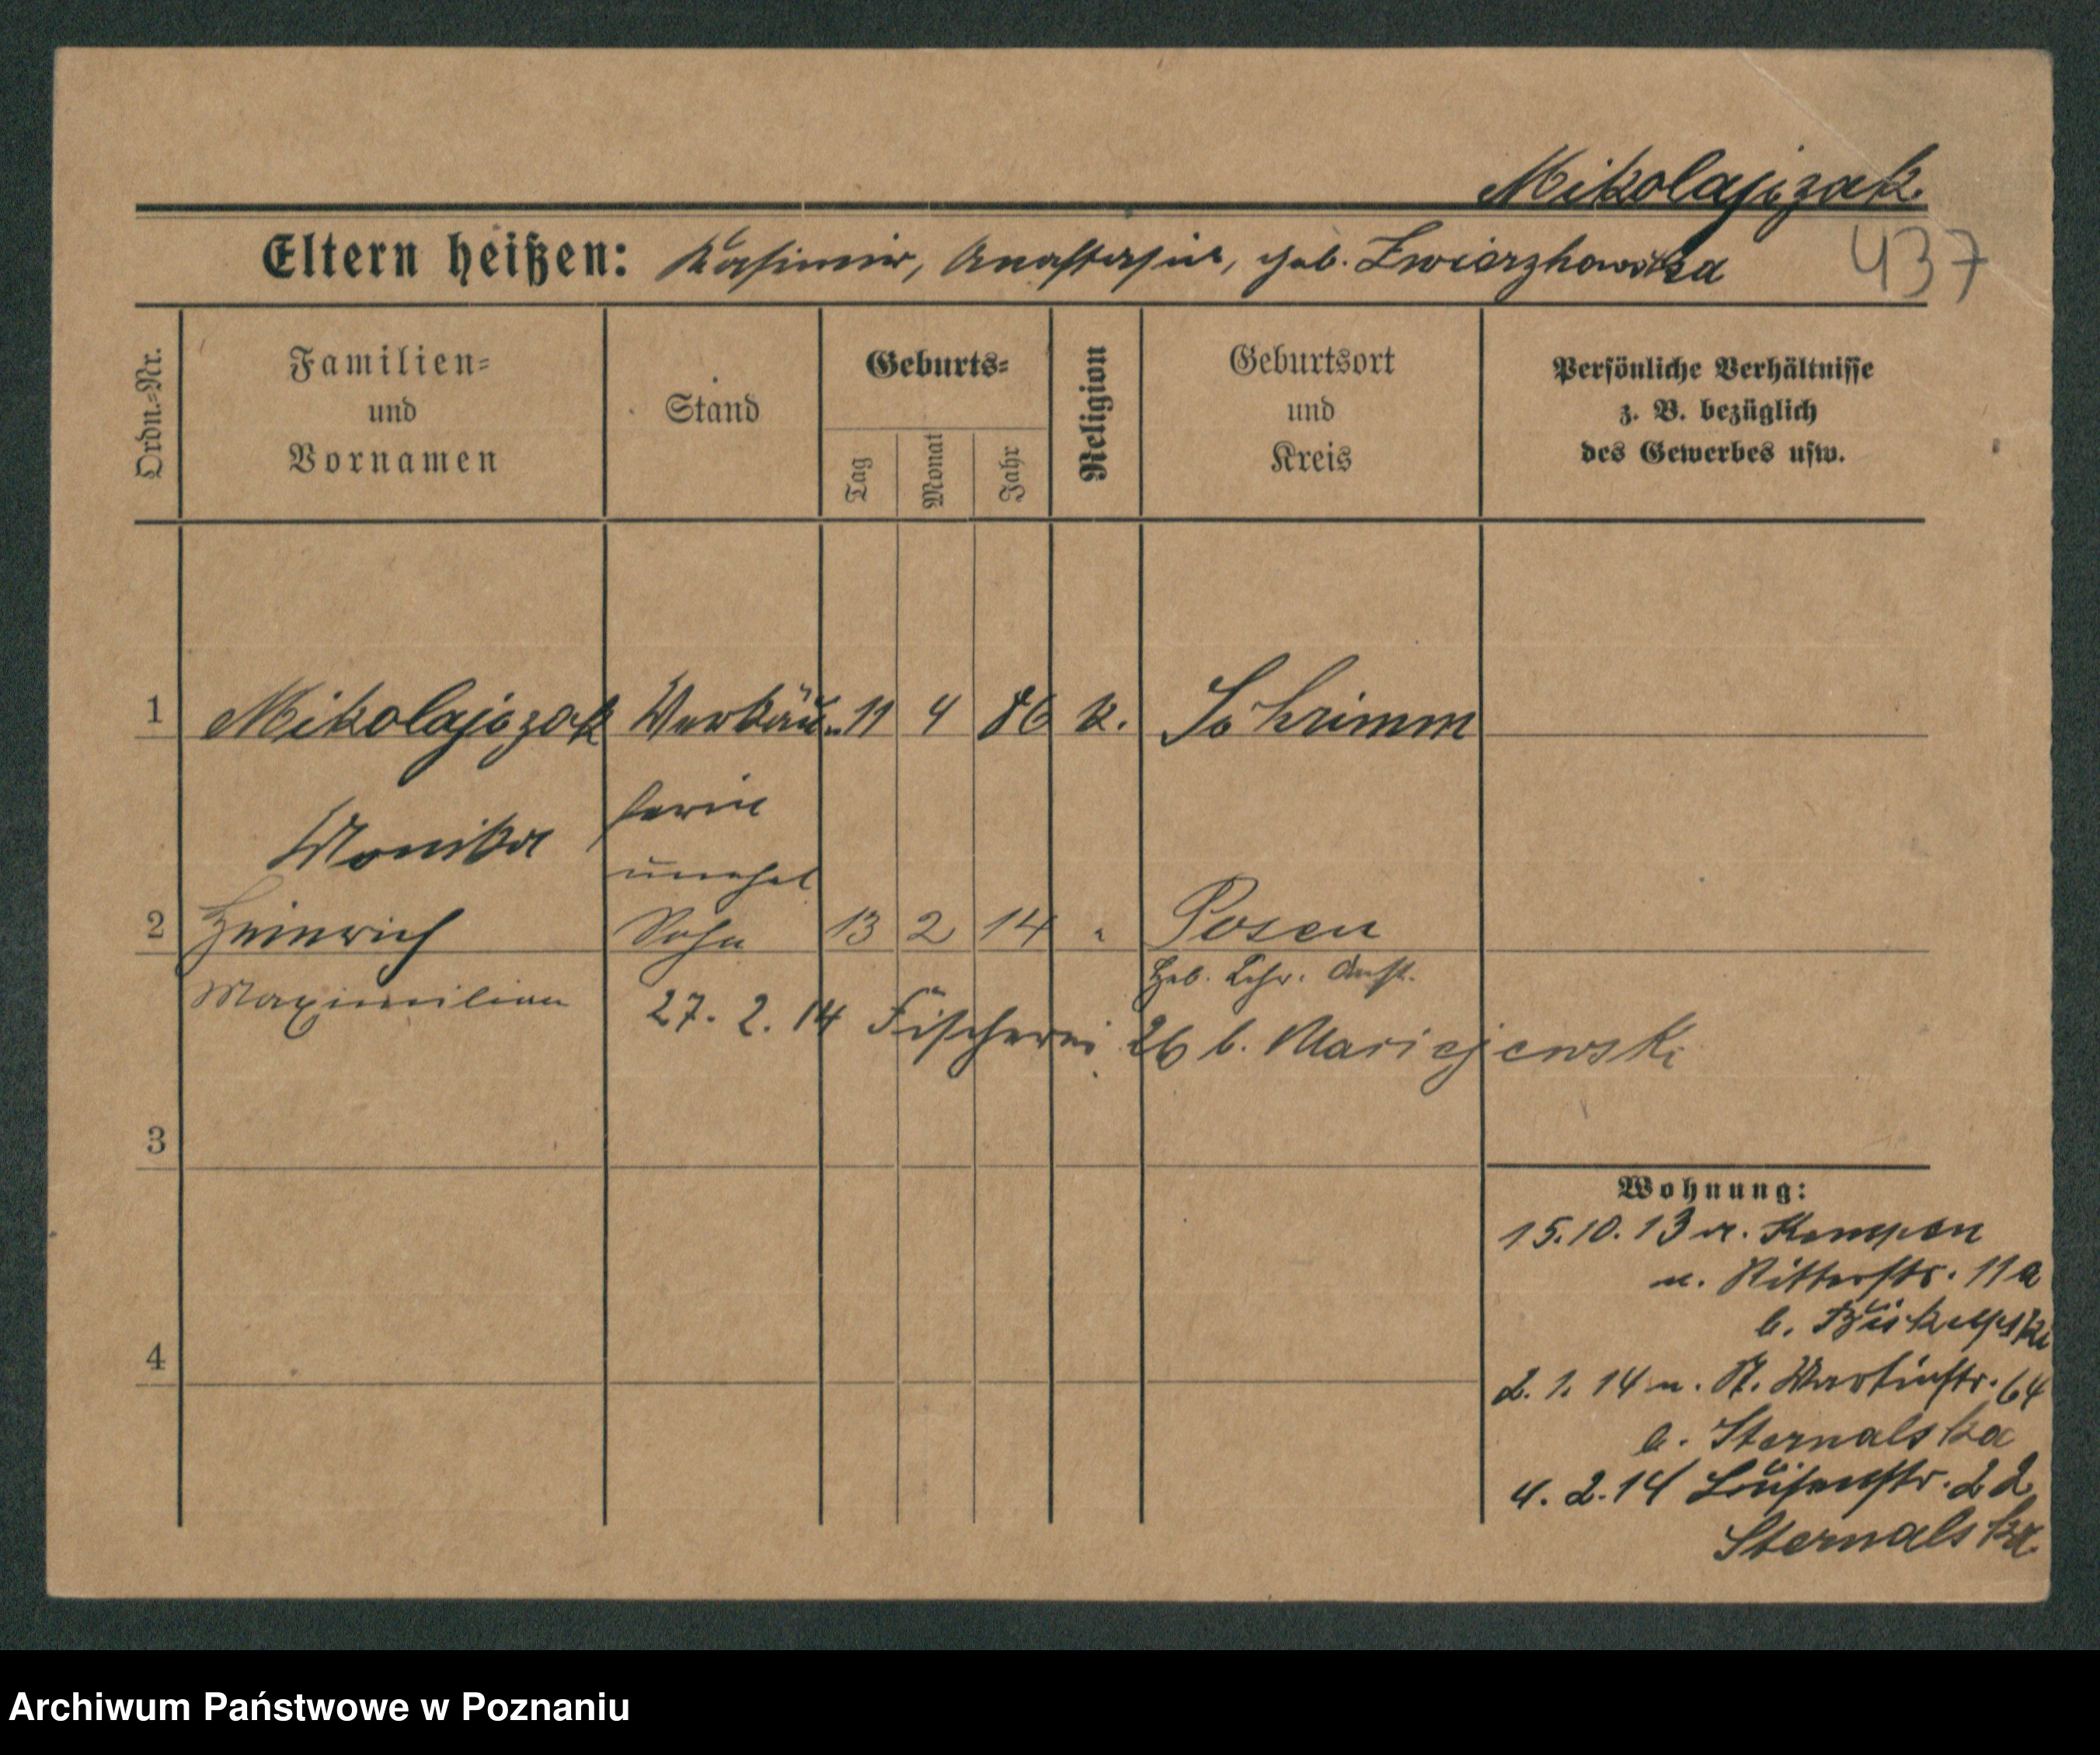 Mikolajczak
Eltern heißen: Kasimir, Anastasia, geb. Zwierzhowska 437
Ordn.-Nr.
Familien- und Vornamen
Stand
Geburts-
Tag
Monat
Jahr
Religion
Geburtsort und Kreis
Persönliche Verhältnisse
z. B. bezüglich
des Gewerbes usw.
1 Mikolajczak Verkäu- 11 4 86 k. Schrimm
Monika ferin
unehel
2 Heinrich Sohn 13 2 14 " Posen
Heb. Lehr. Anst.
Maximilian 27. 2. 14 Fischerei 26 b. Maciejewski
3
Wohnung:
15.10.13 v. Kempen
n. Ritterstr. 11a
b.
4
2. 1. 14 n. St. Martinstr. 64
b. Sternalska
4. 2. 14 Luisenstr. 22
Sternalska
Archiwum Państwowe w Poznaniu